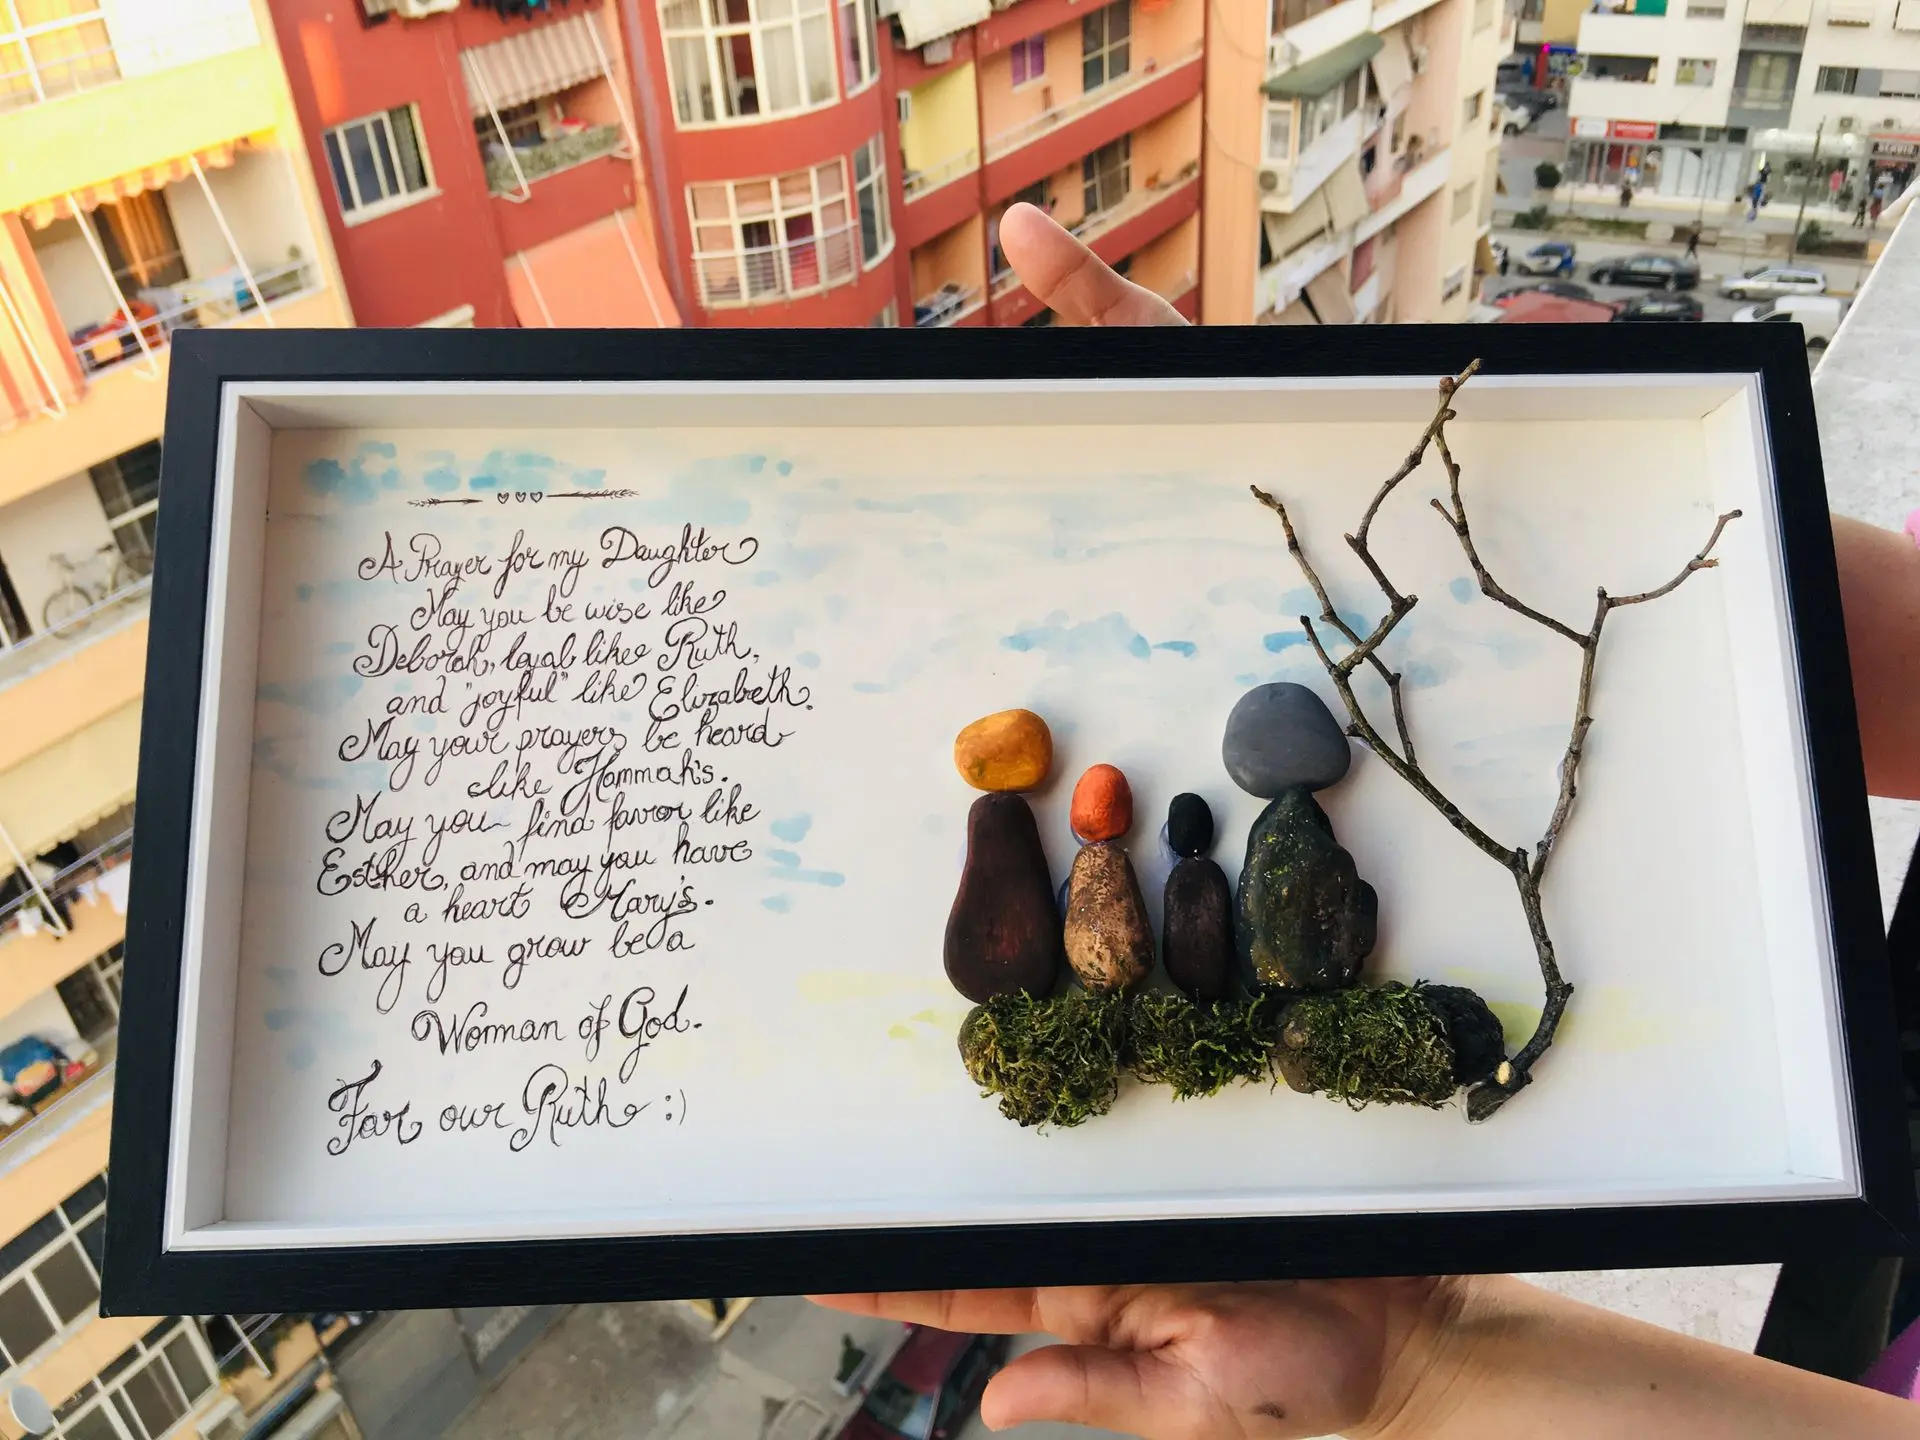 A Prayer for my Daughter
May you be wise like
Deborah, loyal like Ruth,
and "joyful" like Elizabeth.
May your prayers be heard
like Hannah's.
May you find favor like
Esther, and may you have
a heart Mary's.
May you grow be a
Woman of God.
For our Ruth :)